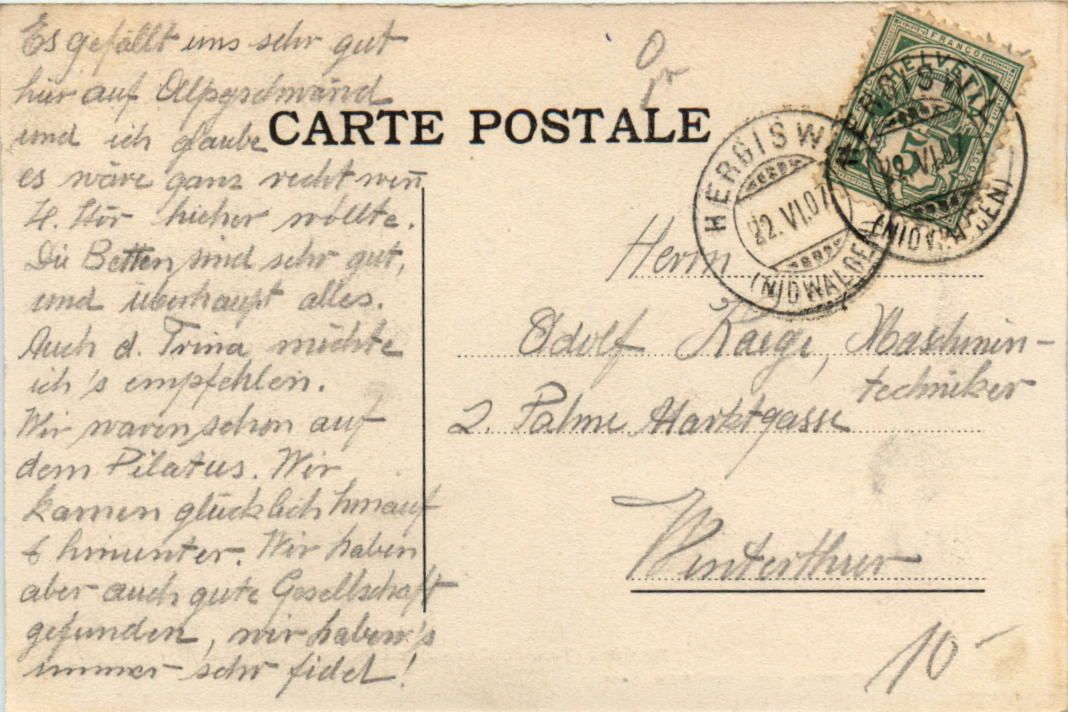 Es gefällt uns sehr gut
hier auf Alpgschwänd
und ich glaube
es wäre ganz recht weñ
H. Hör hieher wollte.
Die Betten sind sehr gut,
und überhaupt alles.
Auch d. Trina möchte
ich's empfehlen.
Wir waren schon auf
dem Pilatus. Wir
kamen glücklich hinauf
& hinunter. Wir haben
aber auch gute Gesellschaft
gefunden, wir haben's
immer sehr fidel!
CARTE POSTALE
HERGISWIL
22.VI.07
(NIDWALDEN)
FRANCO
HELVETIA
HERGISWIL
22.VI.07
(NIDWALDEN)
Herrn
Adolf Kaegi, Maschinen-
techniker
z. Palme Marktgasse
Winterthur
10-